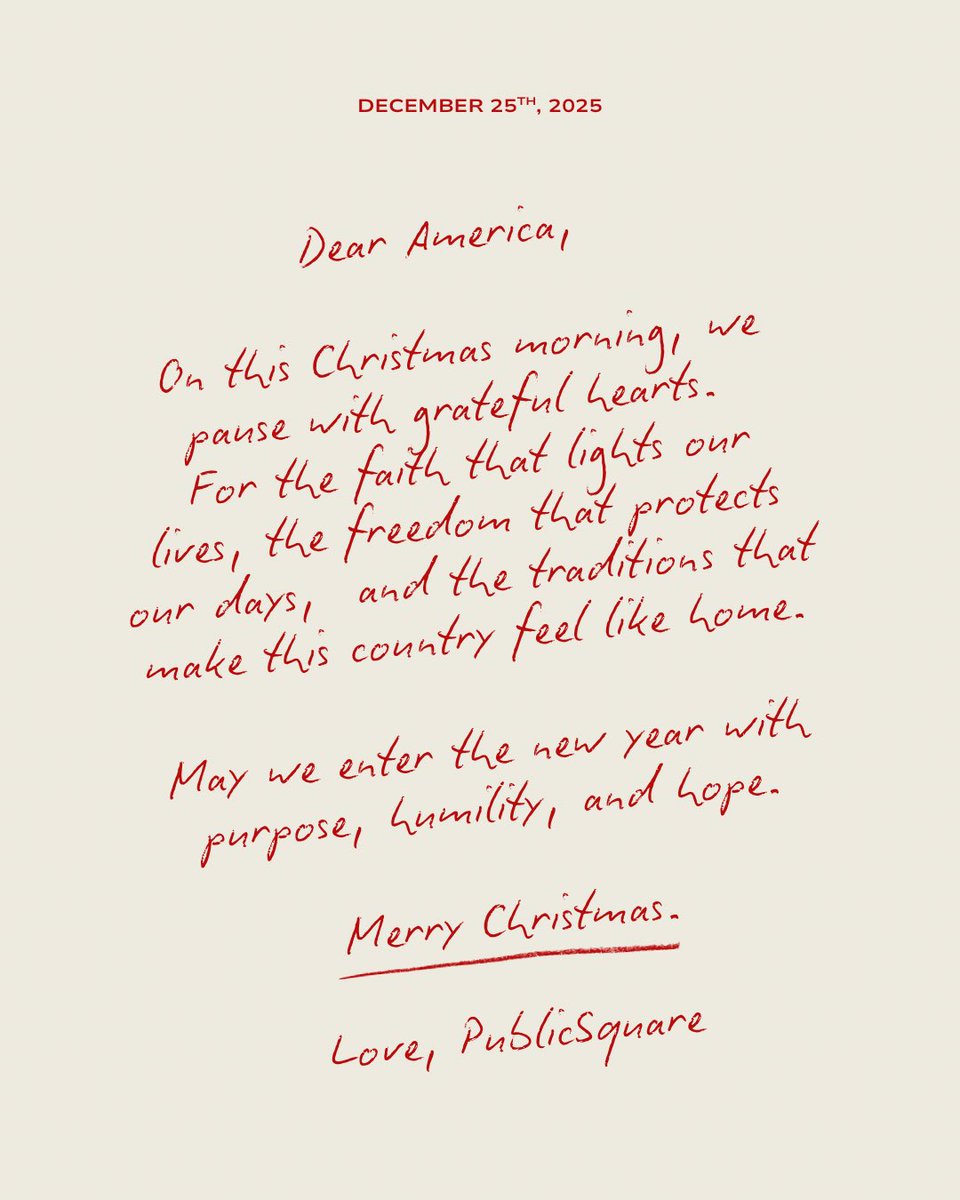 DECEMBER 25TH, 2025
Dear America,
On this Christmas morning, we
pause with grateful hearts.
For the faith that lights our
lives, the freedom that protects
our days, and the traditions that
make this country feel like home.
May we enter the new year with
purpose, humility, and hope.
Merry Christmas.
Love, PublicSquare